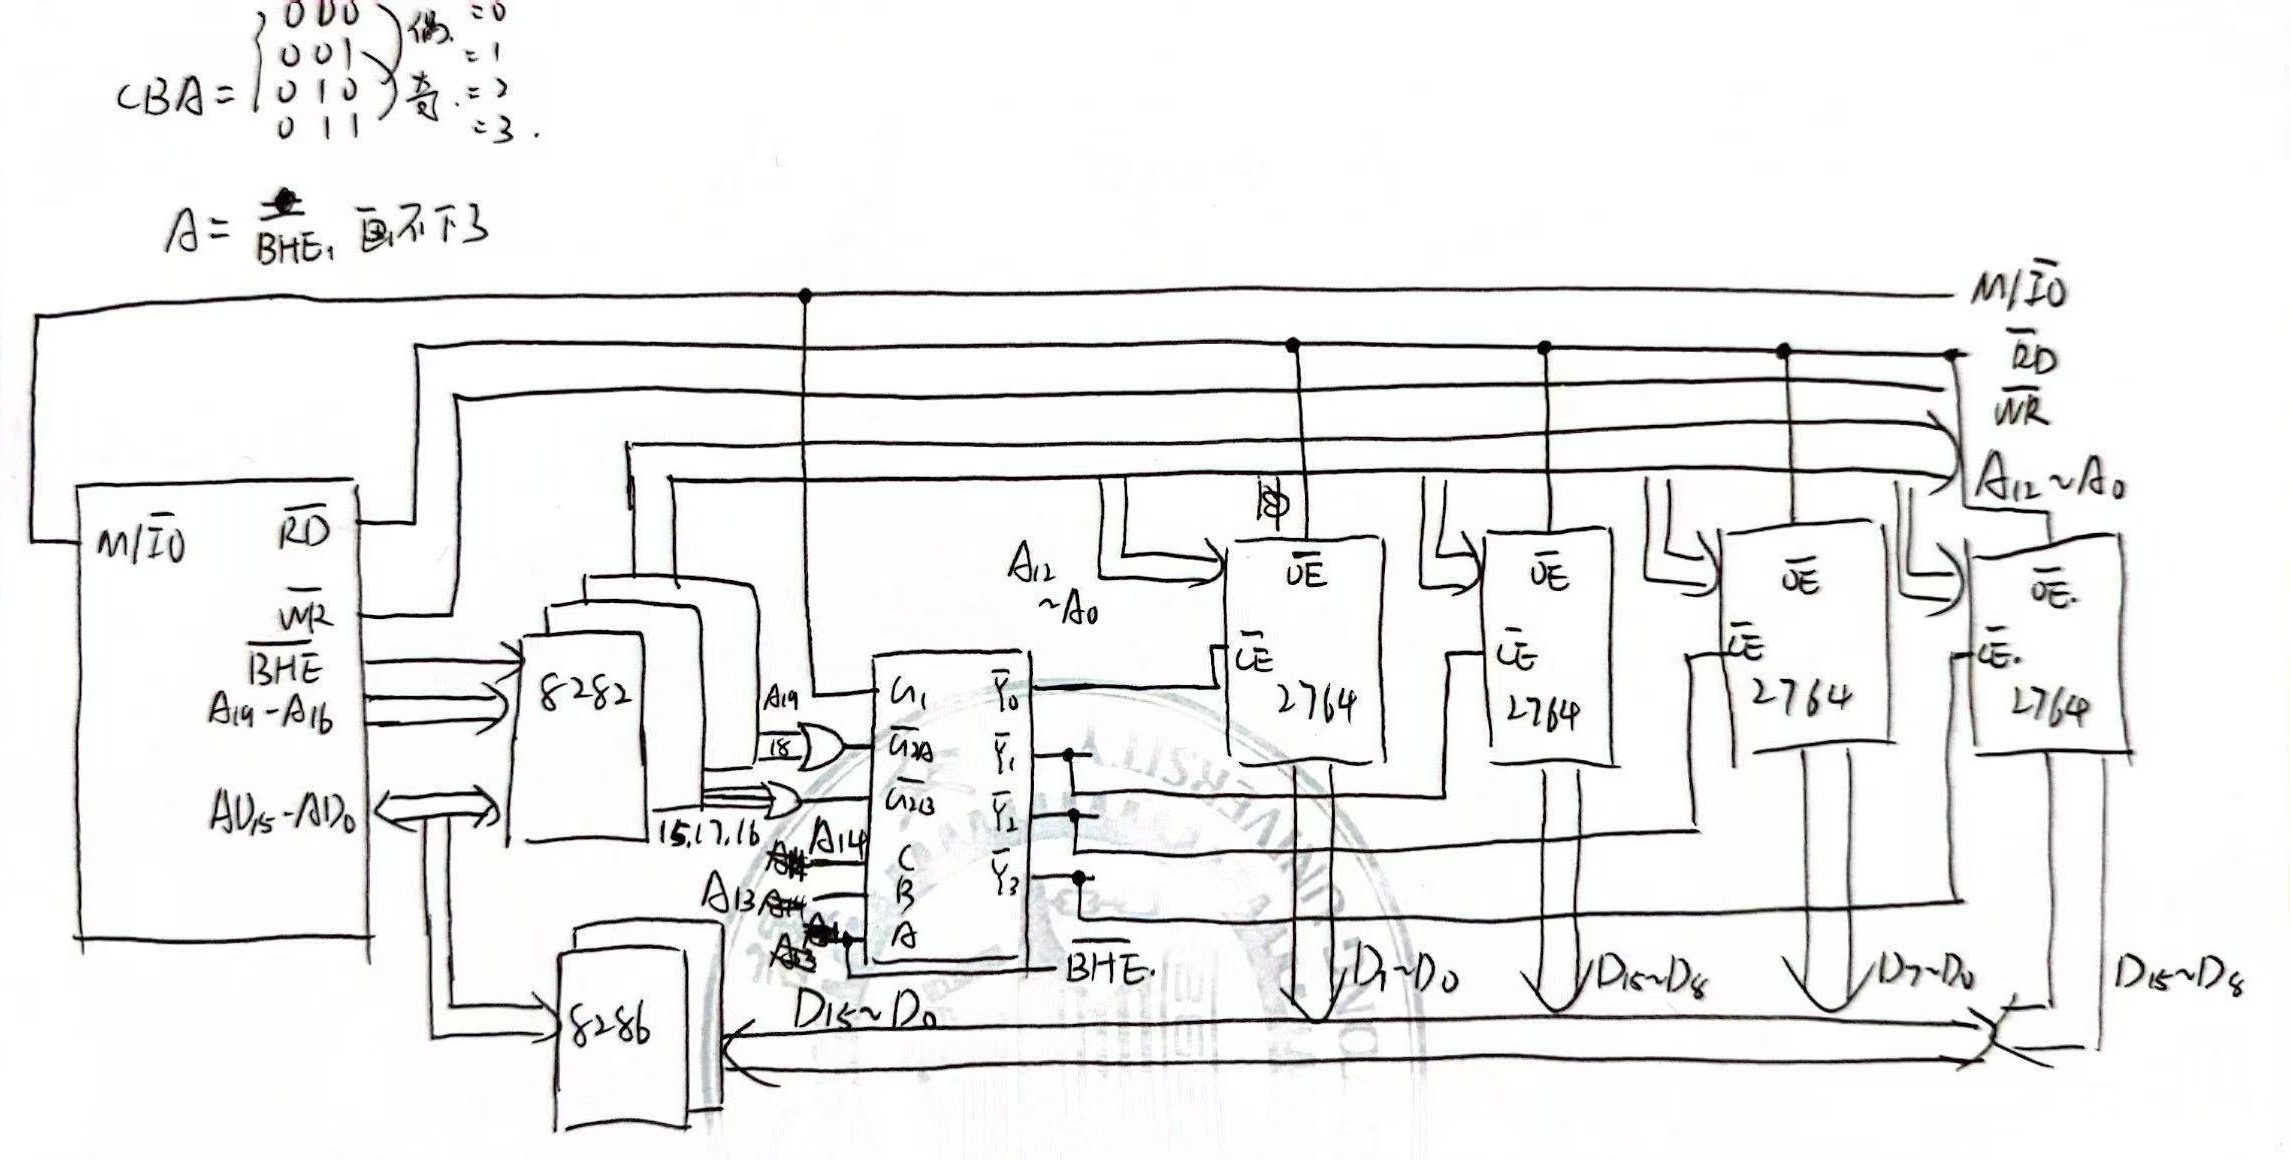 000 偶. =0
001 =1
CBA= 010 奇. =2
011 =3.
A= B̅H̅E̅, 画不下了
M/I̅O̅
R̅D̅
W̅R̅
A12~A0
M/I̅O̅ R̅D̅
W̅R̅
B̅H̅E̅
A19-A16
AD15-AD0
8282
8286
A19
18
15.17.16
A14
A13
G1
G̅2A
G̅2B
C
B
A
Y̅0
Y̅1
Y̅2
Y̅3
B̅H̅E̅.
A12
~A0
O̅E̅
C̅E̅
2764
O̅E̅
C̅E̅
2764
O̅E̅
C̅E̅
2764
O̅E̅.
C̅E̅.
2764
D7~D0
D15~D8
D7~D0
D15~D8
D15~D0